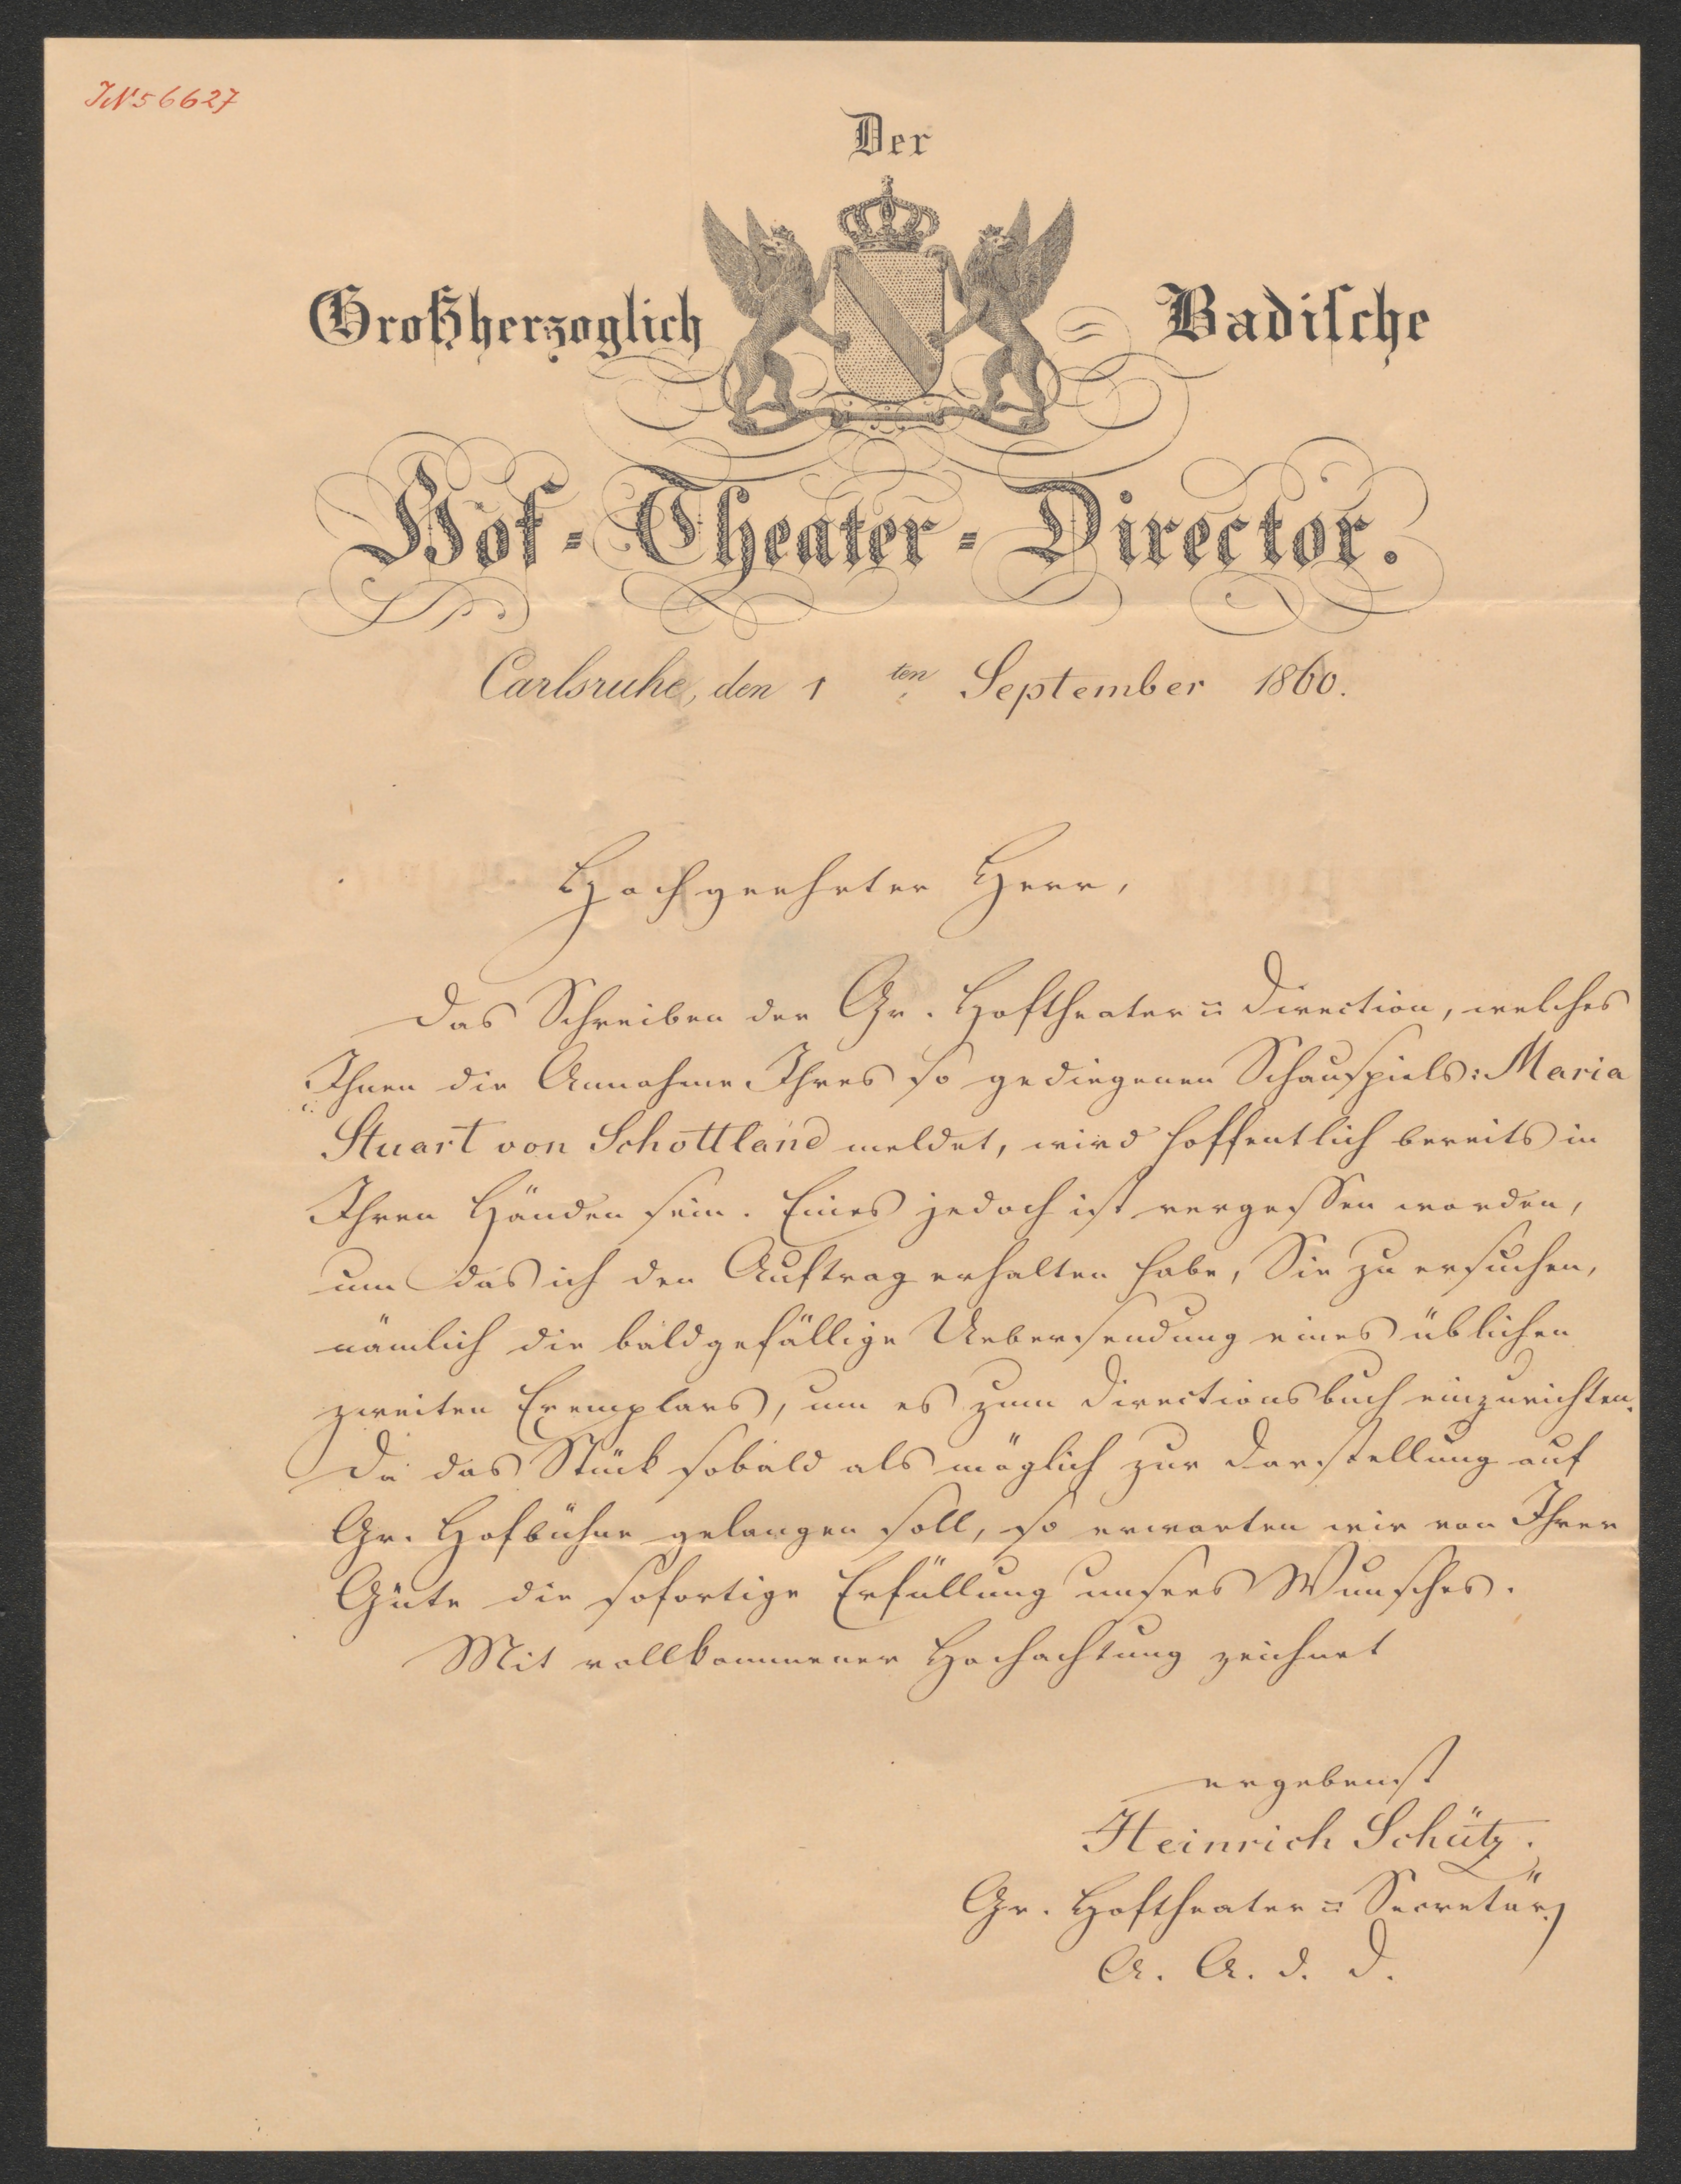 IN 56627
Der
Großherzoglich Badische
Hof-Theater-Director.
Carlsruhe, den 1 ten September 1860.
Hochgeehrter Herr,
Das Schreiben der Gr. Hoftheater=Direction, welches
Ihnen die Annahme Ihres so gediegenen Schauspiels: Maria
Stuart von Schottland meldet, wird hoffentlich bereits in
Ihren Händen sein. Eines jedoch ist vergessen worden,
um das ich den Auftrag erhalten habe, Sie zu ersuchen,
nämlich die baldgefällige Uebersendung eines üblichen
zweiten Exemplars, um es zum Directionsbuch einzurichten.
Da das Stück sobald als möglich zur Darstellung auf
Gr. Hofbühne gelangen soll, so erwarten wir von Ihrer
Güte die sofortige Erfüllung unsres Wunsches.
Mit vollkommener Hochachtung zeichnet
ergebenst
Heinrich Schütz.
Gr. Hoftheater=Secretär,
A. A. d. D.